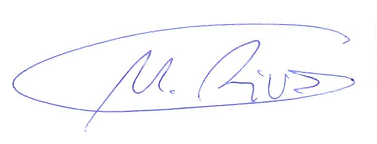 M. Rius